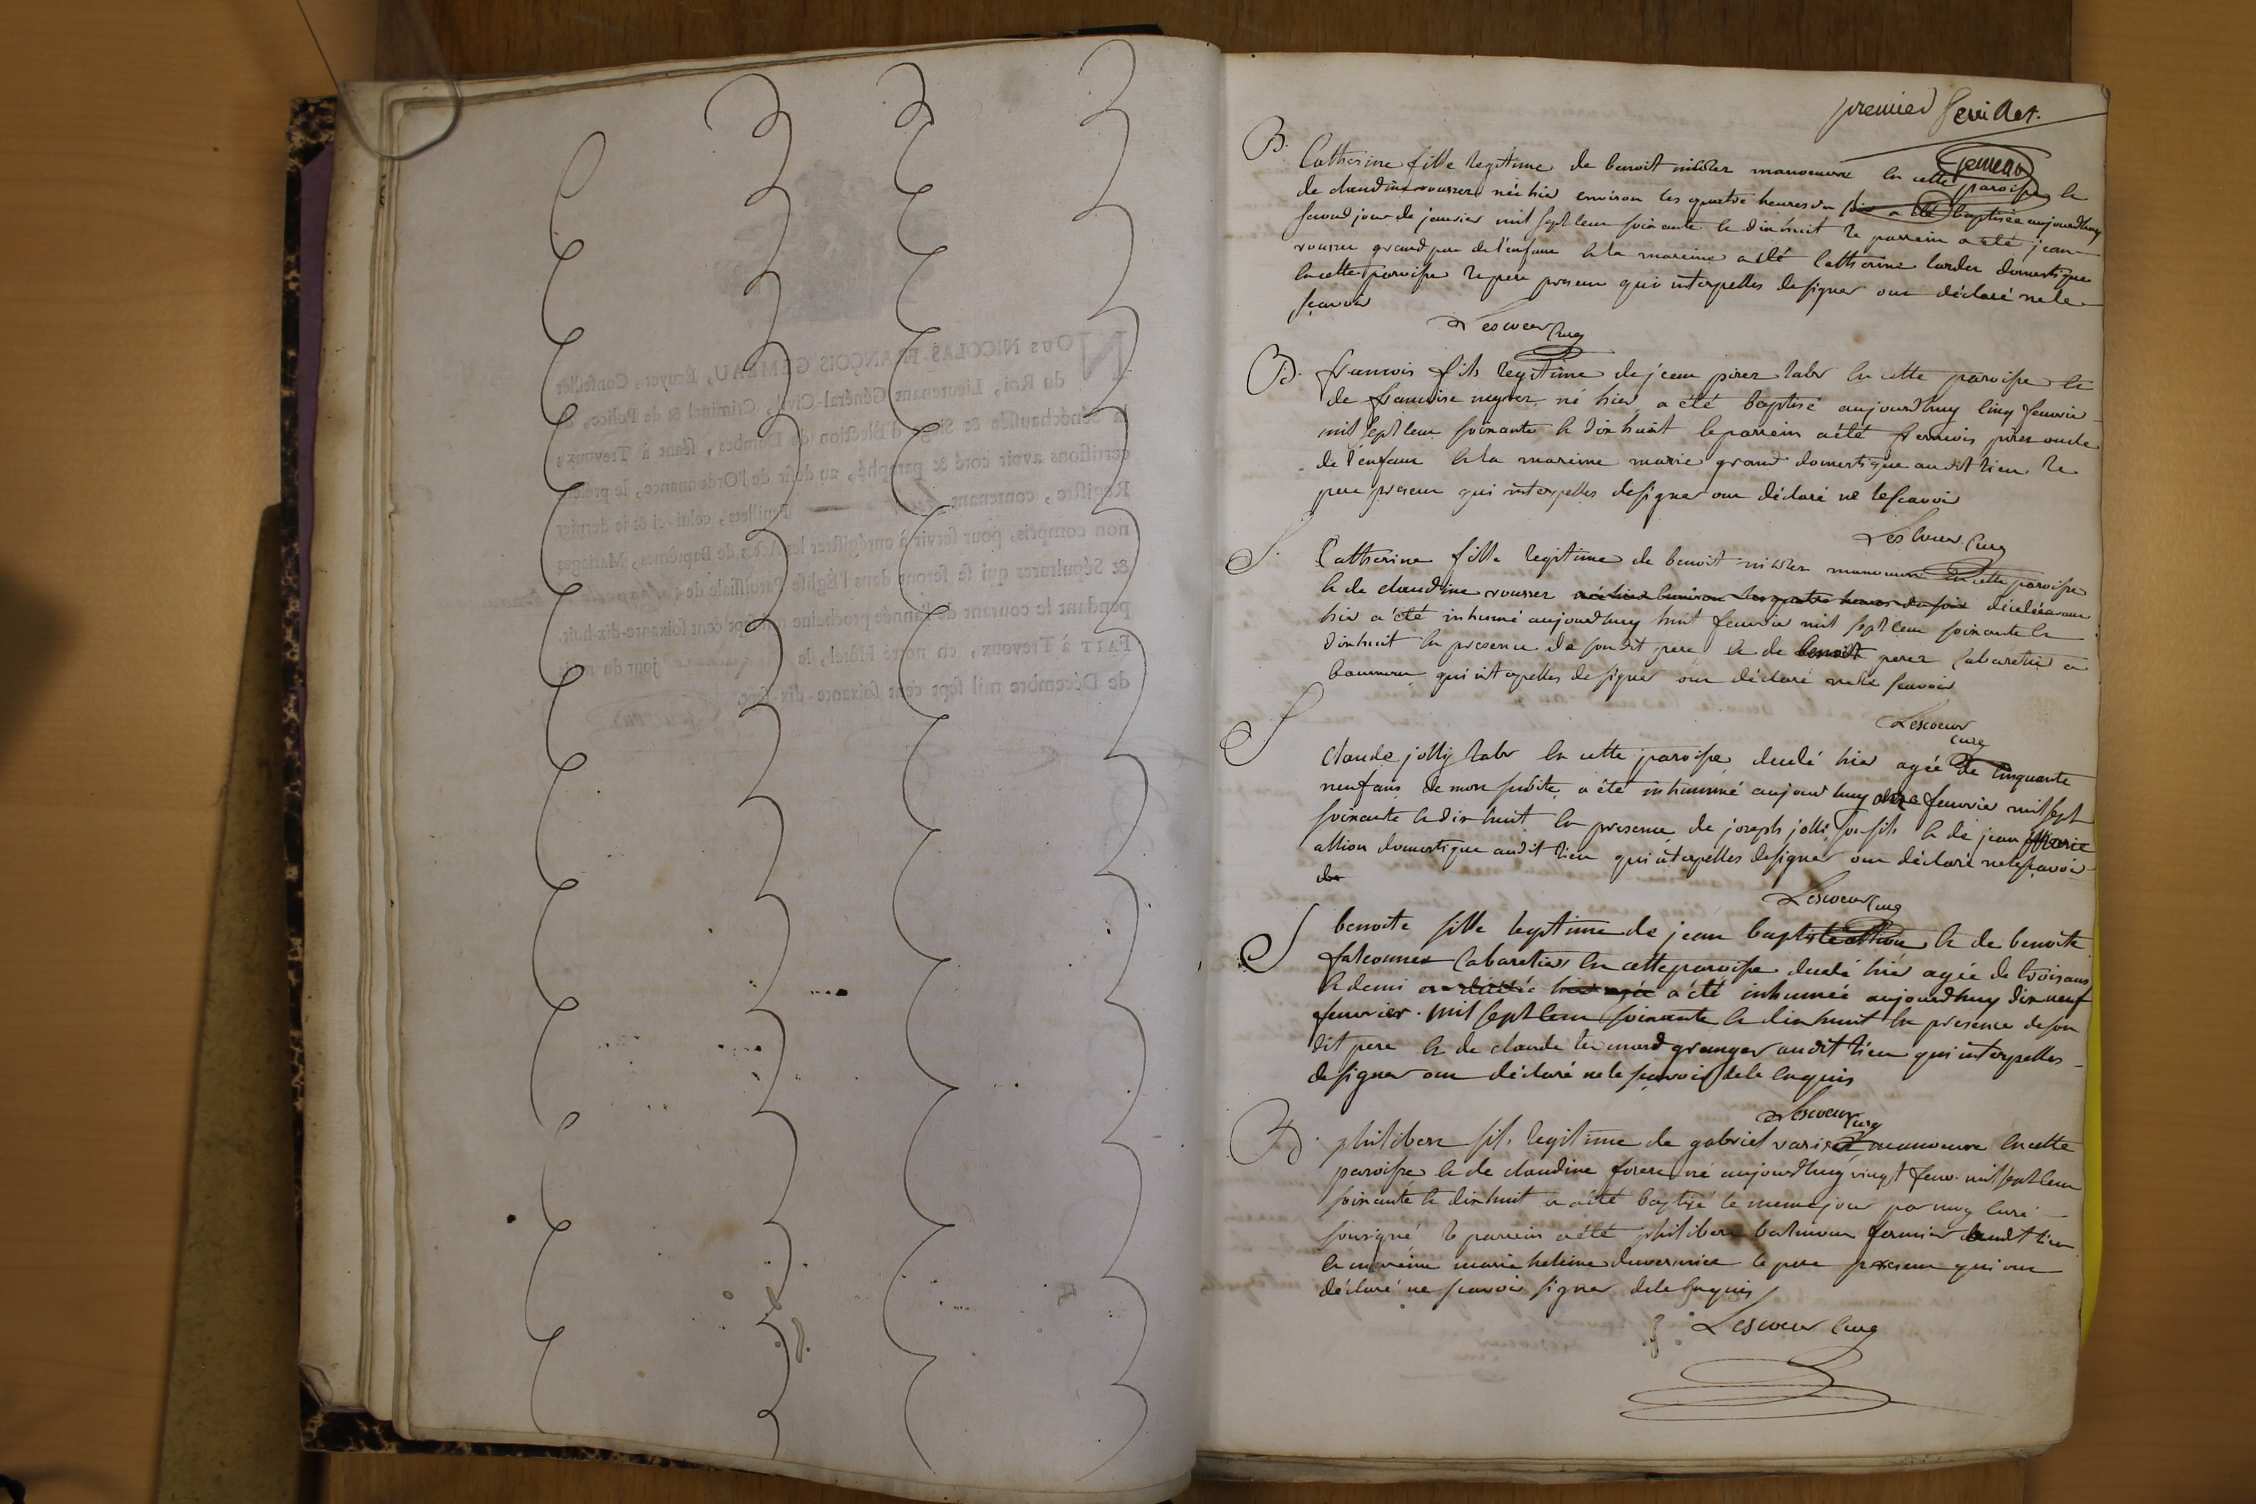 NOUS NICOLAS-FRANÇOIS GEMEAU, Écuyer, Conseiller
du Roi, Lieutenant Général-Civil, Criminel & de Police,
la Sénéchaussée & Siege d'Election de Dombes, séant à Trevoux;
certifions avoir coté & paraphé, au desir de l'Ordonnance, le présent
Registre, contenant Feuillets, celui-ci & le dernier
non compris, pour servir à enrégistrer les Actes de Baptêmes, Mariages
& Sépultures qui se feront dans l'Église Paroissiale de
pendant le courant de l'année prochaine mil sept cent soixante-dix-huit.
FAIT à Trevoux, en notre Hôtel, le jour du mois
de Décembre mil sept cent soixante-dix-sept.
premier feuillet.
gemeau
B. Catherine fille legitime de benoit manoeuvre en cette paroisse &
de claudine rousset née hier environ les quatre heures du soir a été baptisée aujourdhuy
second jour de janvier mil sept cent soixante & dix huit le parrein a été jean
rousset grand pere de l'enfant & la mareine a été Catherine domestique
en cette paroisse le pere present qui interpelles de signer ont déclaré ne le
scavoir
Lescoeur Curé
B. francois fils legitime de jean labr en cette paroisse &
de francoise né hier a été baptisé aujourdhuy cinq fevrier
mil sept cent soixante & dix huit le parrein a été francois oncle
de l'enfant & la mareine marie grand domestique audit lieu le
pere present qui interpelles de signer ont déclaré ne le scavoir
Lescoeur Curé
S. Catherine fille legitime de benoit manoeuvre en cette paroisse
& de claudine rousset née hier environ les quatre heures du soir décédée
hier a été inhumé aujourdhuy huit fevrier mil sept cent soixante &
dix huit en presence de son dit pere & de benoit perez Cabaretier a
qui interpelles de signer ont déclaré ne le scavoir
Lescoeur
curé
S claude jolly labr en cette paroisse decedé hier agée de cinquante
neuf ans de mort subite a été inhummé aujourdhuy onze fevrier mil sept
soixante & dix huit en presence de joseph jolli son fils & de jean marie
allion domestique audit lieu qui interpelles de signer ont déclaré ne le scavoir
de
Lescoeur Curé
S benoite fille legitime de jean baptiste allion & de benoite
falconnet Cabaretier en cette paroisse decedé hier agée de trois ans
& demi décédée hier agée a été inhumée aujourdhuy dix neuf
fevrier. mil sept cent soixante & dix huit en presence de son
dit pere & de claude granger audit lieu qui interpelles
de signer ont déclaré ne le scavoir de ce enquis
Lescoeur Curé
B. philibert fils legitime de gabriel manoeuvre en cette
paroisse & de claudine né aujourdhuy vingt fevr. mil sept cent
soixante & dix huit a été baptisé le meme jour par moy curé
sousigné le parrein a été philibert fermier audit lieu
la mareine marie heleine le pere present qui ont
déclaré ne scavoir signer de ce enquis
Lescoeur Curé